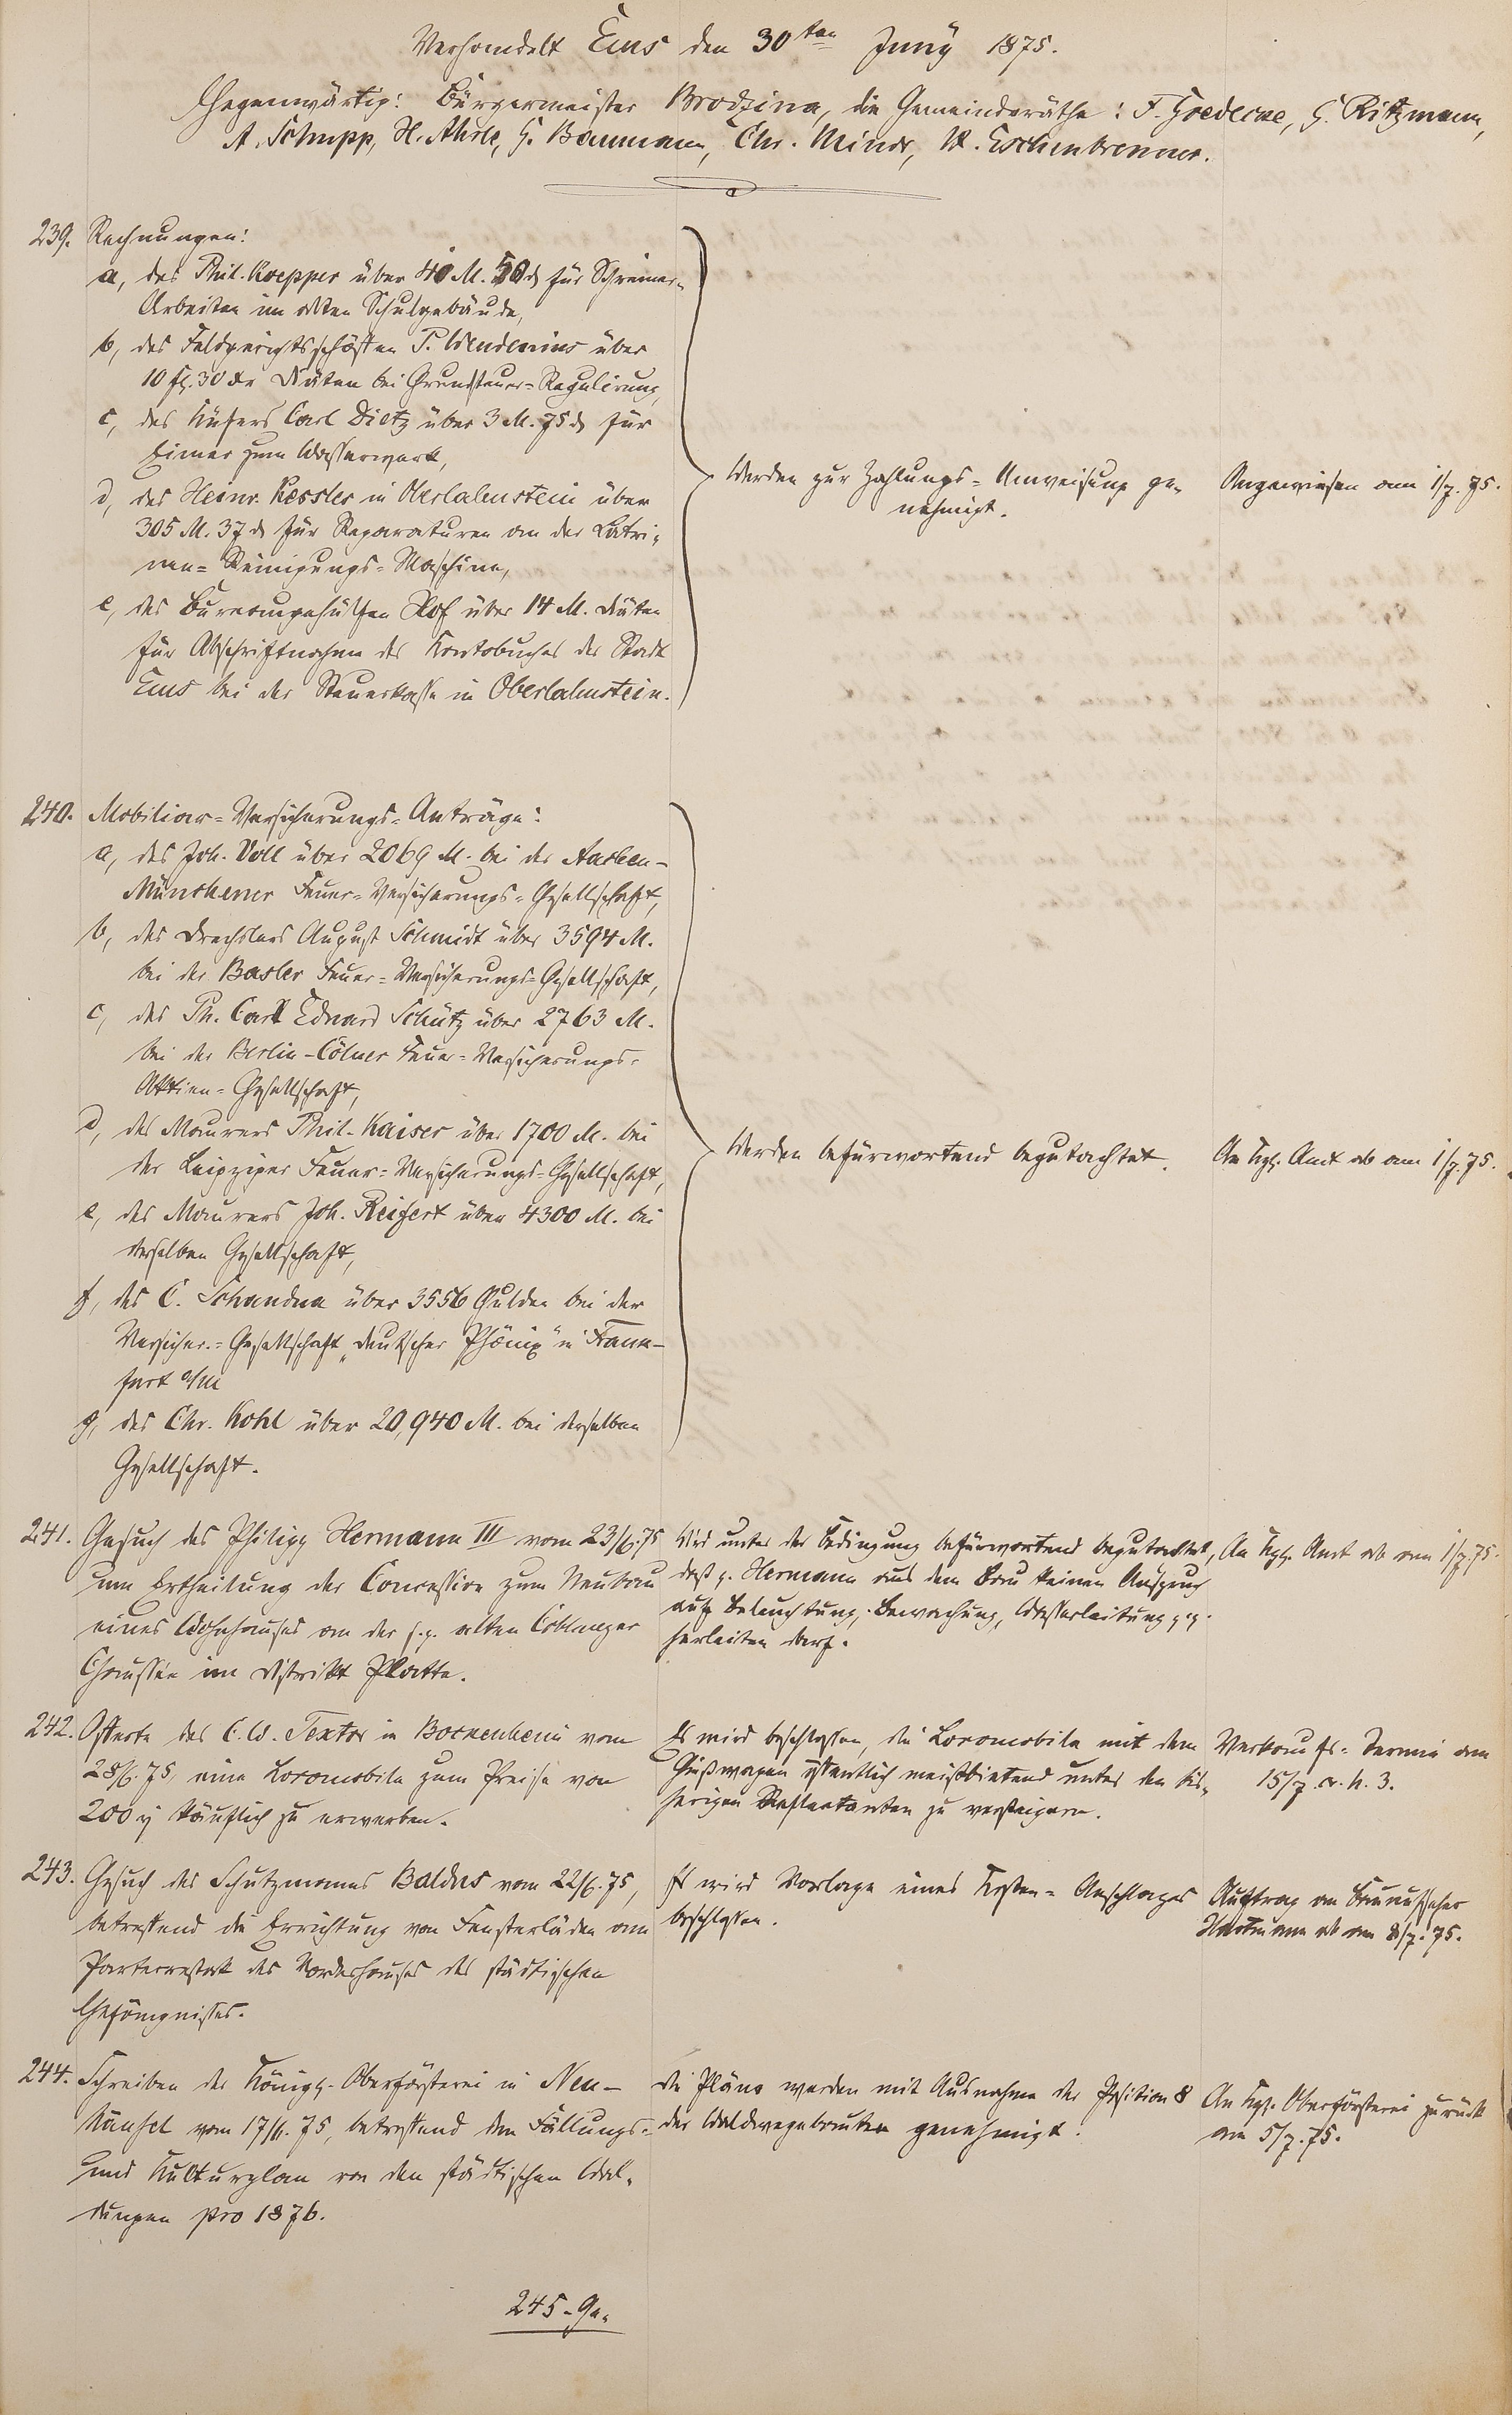 Verhandelt Ems den 30ten Juny 1875.
Gegenwärtig: Bürgermeister Brodzina, die Gemeinderäthe: F. Goedecke, G. Ritzmann,
A. Schupp, H. Ahrle, G. Baumann, Chr. Minor, W. Eschenbrenner.
239. Rechnungen:
a, des Phil. Koepper über 40 M. 50 ₰ für Schreiner-
Arbeiten im alten Schulgebäude,
b, des Feldgerichtsschöffen P. Wendenius über
10 fl. 30 xr Diäten bei Grundsteuer-Regulirung,
c, des Küfers Carl Dietz über 3 M. 75 ₰ für
Eimer zum Wasserwerk,
d, des Heinr. Kessler in Oberlahnstein über
305 M. 37 ₰ für Reparaturen an der Latri-
nen-Reinigungs-Maschine,
e, des Bureaugehülfen Hof über 14 M. Diäten
für Abschriftnahme des Kontobuches der Stadt
Ems bei der Steuerkasse in Oberlahnstein.
Werden zur Zahlungs-Anweisung ge-
nehmigt.
Angewiesen am 1/7. 75.
240. Mobiliar-Versicherungs-Anträge:
a, des Joh. Voll über 2069 M. bei der Aachen-
Münchener Feuer-Versicherungs-Gesellschaft,
b, des Drechslers August Schmidt über 3594 M.
bei der Basler Feuer-Versicherungs-Gesellschaft,
c, des Ph. Carl Eduard Schütz über 2763 M.
bei der Berlin-Cölner Feuer-Versicherungs-
Aktien-Gesellschaft,
d, des Maurers Phil. Kaiser über 1700 M. bei
der Leipziger Feuer-Versicherungs-Gesellschaft,
e, des Maurers Joh. Reifert über 4300 M. bei
derselben Gesellschaft,
f, des C. Schandua über 3556 Gulden bei der
Versicher.-Gesellschaft „Deutscher Phönix" in Frank-
furt a/M
g, des Chr. Kohl über 20,940 M. bei derselben
Gesellschaft.
Werden befürwortend begutachtet.
An Kgl. Amt ab am 1/7. 75.
241. Gesuch des Philipp Hermann III vom 23/6. 75
um Ertheilung der Concession zum Neubau
eines Wohnhauses an der s.g. alten Coblenzer
Chaussée im Distrikt Platte.
Wird unter der Bedingung befürwortend begutachtet,
daß p. Hermann aus dem Bau keinen Anspruch
auf Beleuchtung, Bewachung, Wasserleitung p.p.
herleiten darf.
An Kgl. Amt ab am 1/7. 75.
242. Offerte des C. W. Textor in Bockenheim vom
28/6. 75, eine Locomobile zum Preise von
200 käuflich zu erwerben.
Es wird beschlossen, die Locomobile mit dem
Gießwagen öffentlich meistbietend unter den bis-
herigen Reflectanten zu versteigern.
Verkaufs-Termin am
15/7. cr. h. 3.
243. Gesuch des Schutzmanns Baldus vom 22/6. 75,
betreffend die Errichtung von Fensterläden am
Parterrestock des Vorderhauses des städtischen
Gefängnisses.
Es wird Vorlage eines Kosten-Anschlages
beschlossen.
Auftrag an Bauaufseher
Hartmann ab am 8/7. 75.
244. Schreiben der Königl. Oberförsterei in Neu-
häusel vom 17/6. 75, betreffend den Fällungs-
und Kulturplan von den städtischen Wal-
dungen pro 1876.
Die Pläne werden mit Ausnahme der Position 8
der Waldwegebauten genehmigt.
An Kgl. Oberförsterei zurück
am 5/7. 75.
245. Ge-